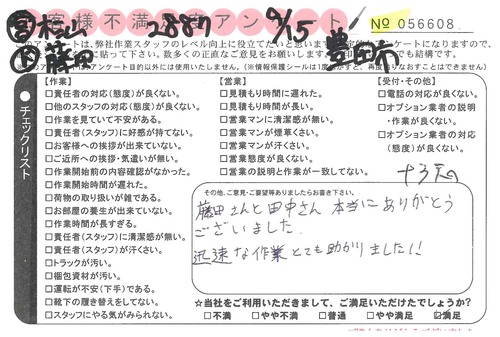 お客様不満足アンケート
2887
9/15
№ 056608
藤田
豊田市
このアンケートは、弊社作業スタッフのレベル向上に役立てたいと思います
チェックリスト
【作業】
□責任者の対応(態度)が良くない。
□他のスタッフの対応(態度)が良くない。
□作業を見ていて不安がある。
□責任者(スタッフ)に好感が持てない。
□お客様への挨拶が出来ていない。
□ご近所への挨拶・気遣いが無い。
□作業開始前の内容確認がなかった。
□作業開始時間が遅れた。
□荷物の取り扱いが雑である。
□お部屋の養生が出来ていない。
□作業時間が長すぎる。
□責任者(スタッフ)に清潔感が無い。
□責任者(スタッフ)が汗くさい。
□トラックが汚い。
□梱包資材が汚い。
□運転が不安(下手)である。
□靴下の履き替えをしてない。
□スタッフにやる気がみられない。
【営業】
□見積もり時間に遅れた。
□見積もり時間が長い。
□営業マンに清潔感が無い。
□営業マンが煙草くさい。
□営業マンが汗くさい。
□営業態度が良くない。
□営業の説明と作業が一致してない。
【受付・その他】
□電話の対応が良くない。
□オプション業者の説明
・作業が良くない。
□オプション業者の対応
(態度)が良くない。
その他、ご意見・ご要望等ありましたらお書き下さい。
藤田さんと田中さん 本当にありがとう
ございました.
迅速な作業とても助かりました!!
☆当社をご利用いただきまして、ご満足いただけたでしょうか?
□不満 □やや不満 □普通 □やや満足 ☑満足